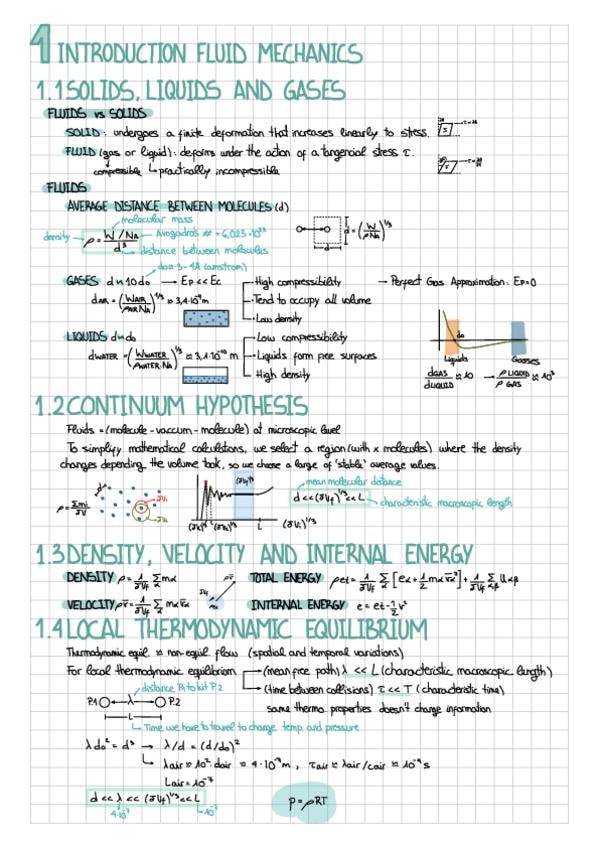 1 INTRODUCTION FLUID MECHANICS
1.1 SOLIDS, LIQUIDS AND GASES
FLUIDS vs SOLIDS
SOLID: undergoes a finite deformation that increases linearly to stress.
FLUID (gas or liquid): deforms under the action of a tangencial stress τ.
compressible ↳ practically incompressible
FLUIDS
AVERAGE DISTANCE BETWEEN MOLECULES (d)
molecular mass
density ρ = W/NA / d³ Avogadro's nº = 6,023·10²³
distance between molecules
d = (W/ρNA)^1/3
GASES d ≈ 10do → Ep << Ec
High compressibility → Perfect Gas Approximation: Ep=0
dAIR = (WAIR/ρAIR NA)^1/3 ≈ 3,4·10⁻⁹m
Tend to occupy all volume
Low density
LIQUIDS d ≈ do
Low compressibility
dWATER = (WWATER/ρWATER NA)^1/3 ≈ 3,1·10⁻¹⁰ m
Liquids form free surfaces
High density
do
Liquids Gasses
dGAS/dLIQUID ≈ 10 → ρ LIQUID/ρ GAS ≈ 10³
1.2 CONTINUUM HYPOTHESIS
Fluids = (molecule - vaccum - molecule) at microscopic level
To simplify mathematical calculations, we select a region (with x molecules) where the density
changes depending the volume took, so we choose a large of 'stable' average values.
mean molecular distance
d << (∂Vf)^1/3 << L
characteristic macroscopic length
ρ = Σmi/∂V
L (∂Vi)^1/3
1.3 DENSITY, VELOCITY AND INTERNAL ENERGY
DENSITY ρ = 1/∂Vf Σα mα
TOTAL ENERGY ρet = 1/∂Vf Σα [eα + 1/2 mα vα²] + 1/∂Vf Σ Uαβ
VELOCITY ρv = 1/∂Vf Σα mα vα
INTERNAL ENERGY e = et - 1/2 v²
1.4 LOCAL THERMODYNAMIC EQUILIBRIUM
Thermodynamic equil. is non-equil. flow (spatial and temporal variations)
For local thermodynamic equilibrium → (mean free path) λ << L (characteristic macroscopic length)
distance P.1 to hit P.2
→ (time between collisions) τ << T (characteristic time)
P.1 λ P.2
same thermo. properties doesn't change information
L
↳ Time we have to travel to change temp. and pressure
λdo² = d³ → λ/d = (d/do)²
↳ λair ≈ 10²·dair ≈ 4·10⁻⁷m, τair ≈ λair/cair ≈ 10⁻⁹s
d << λ << (∂Vf)^1/3 << L
p = ρRT